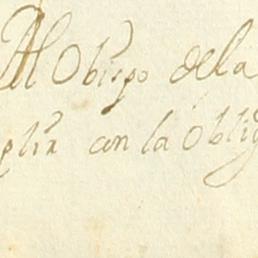 Al Obispo dela
plir con la Oblig